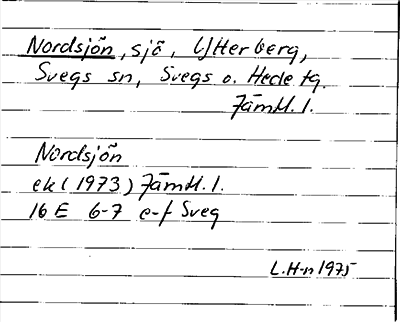 Nordsjön, sjö, Ytterberg,
Svegs sn, Svegs o. Hede tg.
Jämtl. l.
Nordsjön
ek (1973) Jämtl. l.
16 E 6-7 e-f Sveg
L.H-n 1975